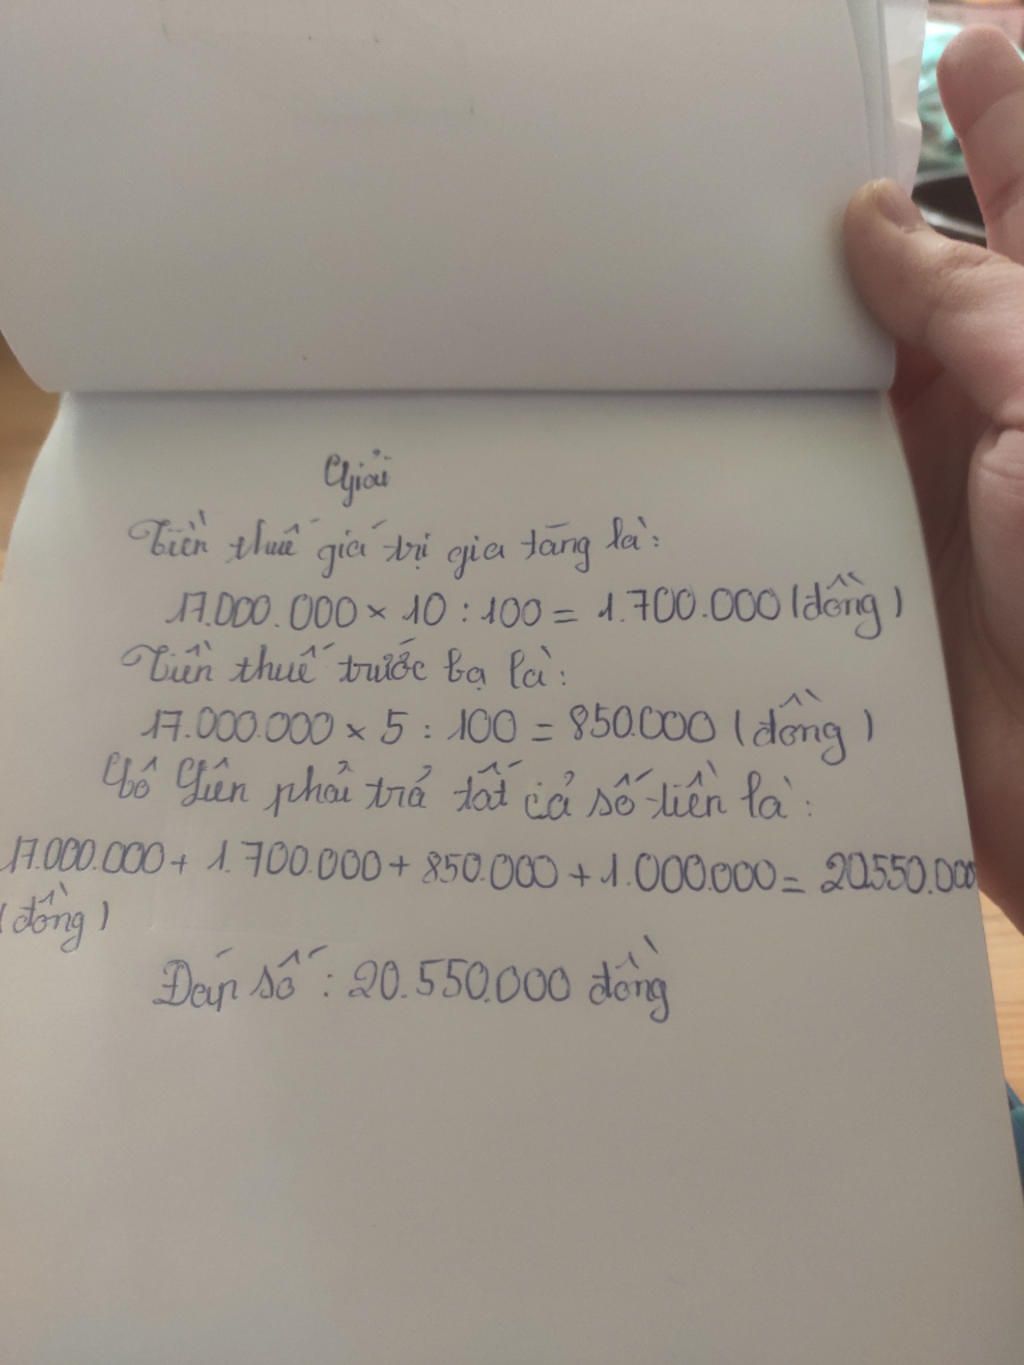 Giải
Tiền thuế giá trị gia tăng là:
17.000.000 × 10 : 100 = 1.700.000 (đồng)
Tiền thuế trước bạ là:
17.000.000 × 5 : 100 = 850.000 (đồng)
Cô Yên phải trả tất cả số tiền là:
17.000.000 + 1.700.000 + 850.000 + 1.000.000 = 20.550.000
(đồng)
Đáp số : 20.550.000 đồng